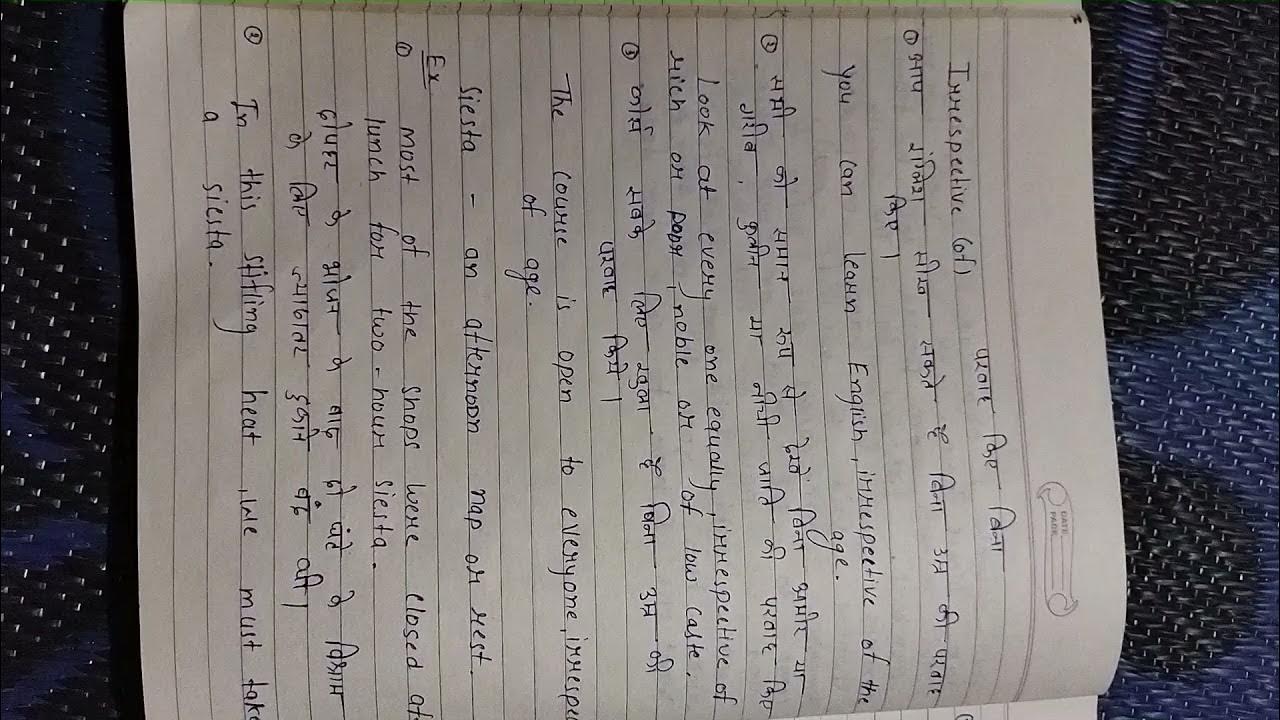 DATE
PAGE
Irrespective (of) परवाह किए बिना
① आप इंग्लिश सीख सकते हैं बिना उम्र की परवाह
किए।
you can learn English, irrespective of the
age.
② सभी को समान रूप से देखो बिना अमीर या
गरीब, कुलीन या नीची जाति की परवाह किए
Look at every one equally, irrespective of
rich or poor, noble or of low caste.
③ कोर्स सबके लिए खुला है बिना उम्र की
परवाह किये।
The course is open to everyone, irrespe
of age.
Siesta - an afternoon nap or rest.
Ex
① most of the shops were closed af
lunch for two-hour siesta.
दोपहर के भोजन के बाद दो घंटे के विश्राम
के लिए ज्यादातर दुकानें बंद थी।
② In this stifling heat, we must take
a siesta.